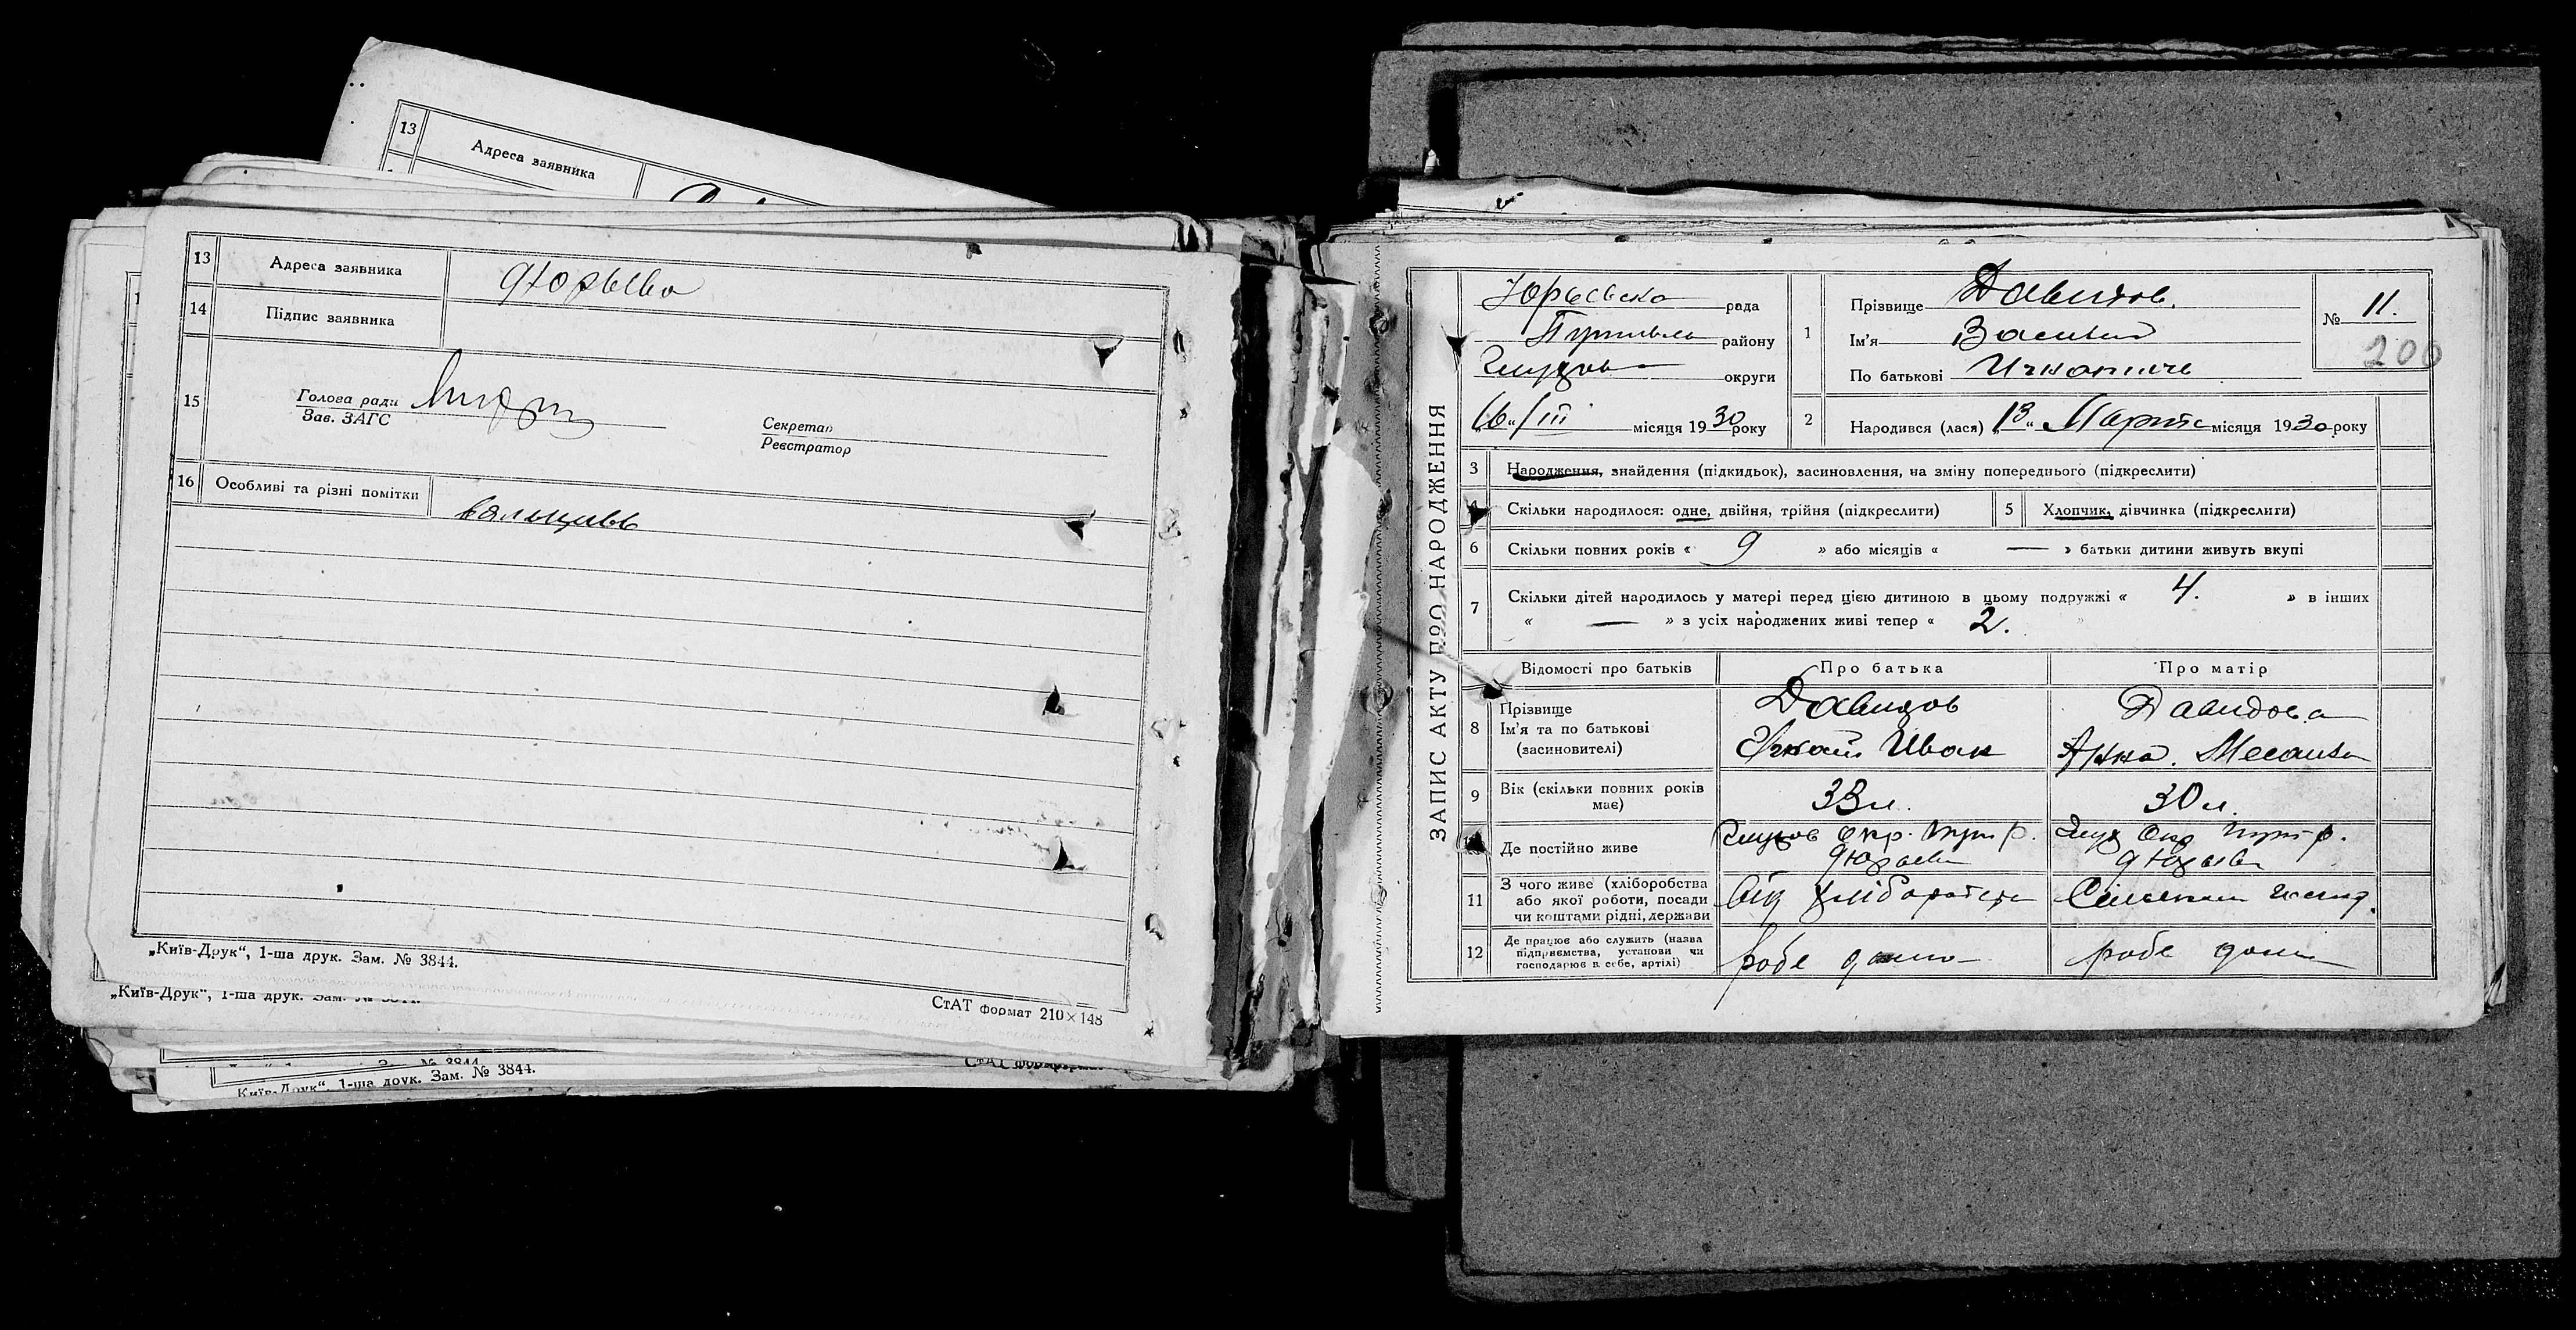 13 Адреса заявника
13 Адреса заявника д Юрьева
14 Підпис заявника
15 Голова ради
Зав. ЗАГС
Секретар
Реєстратор
16 Особливі та різні помітки
„Київ-Друк“, 1-ша друк. Зам. № 3844.
СтАТ формат 210×148
„Київ-Друк“, 1-ша друк. Зам. № 3844.
Київ-Друк“, 1-ша друк. Зам. № 3844.
ЗАПИС АКТУ ПРО НАРОДЖЕННЯ
Юрьевска рада
Путивль району
Глухов округи
„16“/III місяця 1930 року
1 Прізвище Давидов.
Ім'я Василий
По батькові
№ 11.
200
2 Народився (лася) „13“ Марта місяця 1930 року
3 Народження, знайдення (підкидьок), засиновлення, на зміну попереднього (підкреслити)
4 Скільки народилося: одне, двійня, трійня (підкреслити) 5 Хлопчик, дівчинка (підкреслити)
6 Скільки повних років « 9 » або місяців « — » батьки дитини живуть вкупі
7 Скільки дітей народилось у матері перед цією дитиною в цьому подружжі « 4. » в інших
« — » з усіх народжених живі тепер « 2.
Відомості про батьків Про батька Про матір
8 Прізвище
Ім'я та по батькові
(засиновителі)
Давидов
Иван
Давидова
Анна.
9 Вік (скільки повних років має) 33 л. 30 л.
10 Де постійно живе
Глухов Окр. Пут р.
д Юрьева
Глух Окр Пут р.
д Юрьева
11 З чого живе (хліборобства
або якої роботи, посади
чи коштами рідні, держави
12 Де працює або служить (назва
підприємства, установи чи
господарює в себе, артілі)
робе дома
робе дома